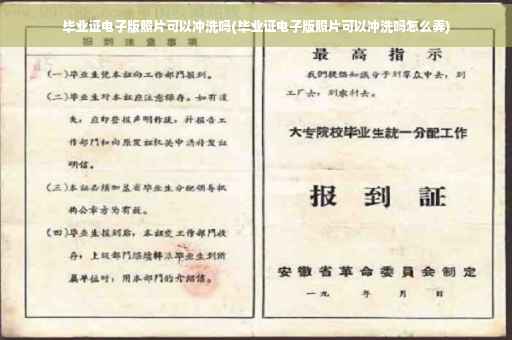 毕业证电子版照片可以冲洗吗(毕业证电子版照片可以冲洗吗怎么弄)
报到注意事项
(一)毕业生凭本证向工作部门报到。
(二)毕业生对本证应注意保存。如有遗
失，应即登报声明作废，并报告工
作部门和向原发证机关申请补发证
明信。
(三)本证必须加盖省毕业生分配领导机
构公章方为有效。
(四)毕业生报到后，本证交工作部门收
存；上级部门
属单位时，用本部门的介绍信。
最高指示
我们提倡知识分子到羣众中去，到
工厂去，到农村去。
大专院校毕业生統一分配工作
报到証
安徽省革命委員会制定
一九 年 月 日